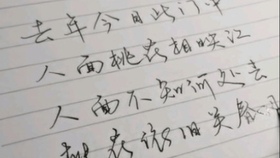 去年今日此门中
人面桃花相映江
人面不知何处去
桃花依旧笑春风